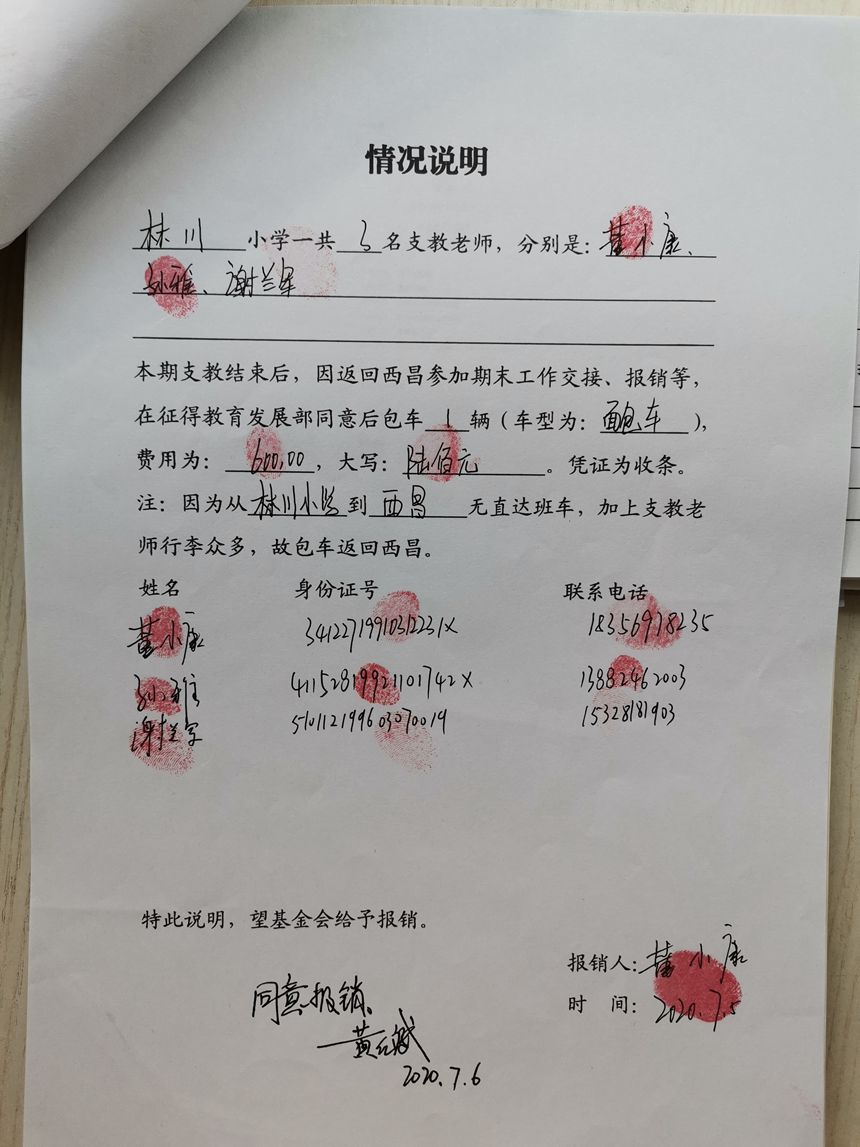 情况说明
林川小学一共3名支教老师，分别是：董小康、
孙雅、谢兰军
本期支教结束后，因返回西昌参加期末工作交接、报销等，
在征得教育发展部同意后包车1辆（车型为：面包车），
费用为：600.00，大写：陆佰元。凭证为收条。
注：因为从林川小学到西昌无直达班车，加上支教老
师行李众多，故包车返回西昌。
姓名 身份证号 联系电话
董小康 34122719910312231X 18356978235
孙雅 41152819921101742X 13882462003
510112199603070019 15328181903
特此说明，望基金会给予报销。
报销人：董小康
时 间：2020.7.5
同意报销。
2020.7.6